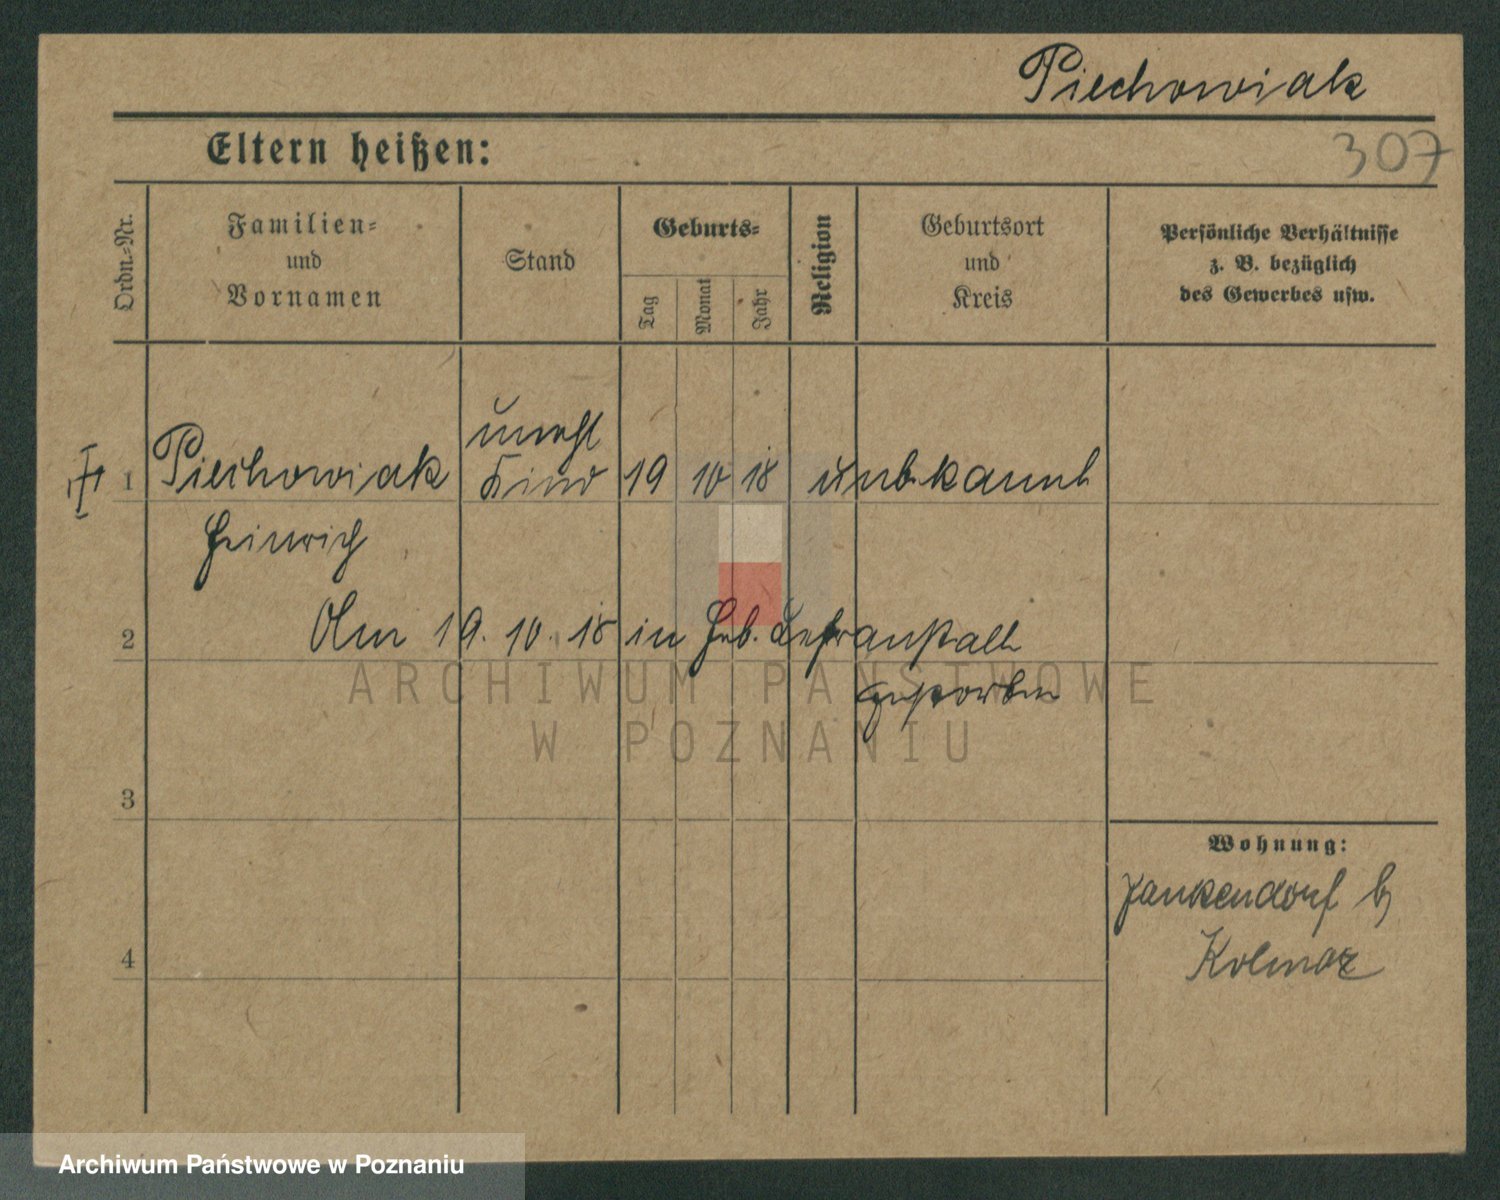 Piechowiak
307
Eltern heißen:
Ordn.-Nr.
Familien- und Vornamen
Stand
Geburts-
Tag
Monat
Jahr
Religion
Geburtsort und Kreis
Persönliche Verhältnisse z. B. bezüglich des Gewerbes usw.
unehl
1 Piechowiak Kind 19 10 18 unbekannt
Heinrich
2 Am 19. 10. 18 in Heb. Lehranstalt
gestorben
ARCHIWUM PAŃSTWOWE
W POZNANIU
3
Wohnung:
Jankendorf b/
4 Kolmar
Archiwum Państwowe w Poznaniu